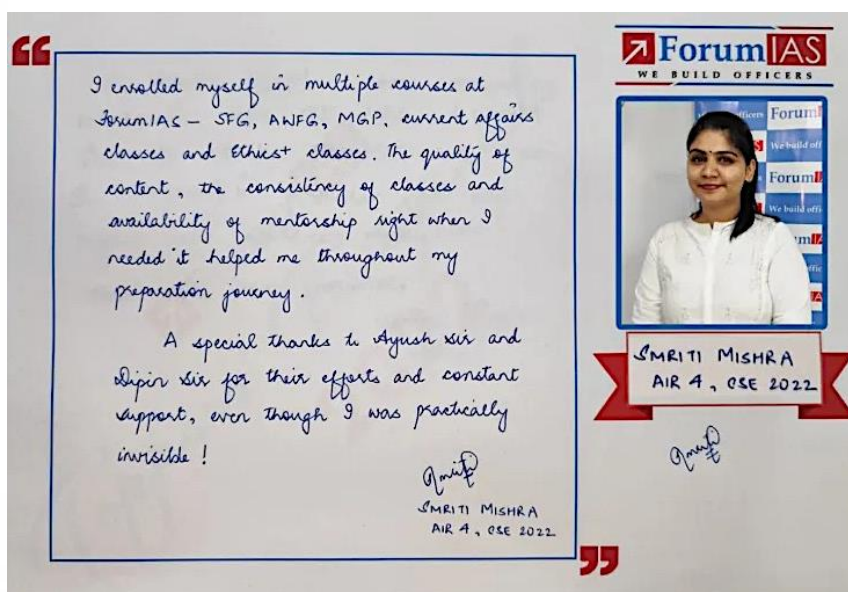 I enrolled myself in multiple courses at
ForumIAS – SFG, AWFG, MGP, current affairs
classes and Ethics+ classes. The quality of
content, the consistency of classes and
availability of mentorship right when I
needed it helped me throughout my
preparation journey.
A special thanks to Ayush sir and
Dipin sir for their efforts and constant
support, even though I was practically
invisible!
Smriti
SMRITI MISHRA
AIR 4, CSE 2022
ForumIAS
WE BUILD OFFICERS
officers Forum
We build off
Forum
We build offi
SMRITI MISHRA
AIR 4, CSE 2022
Smriti